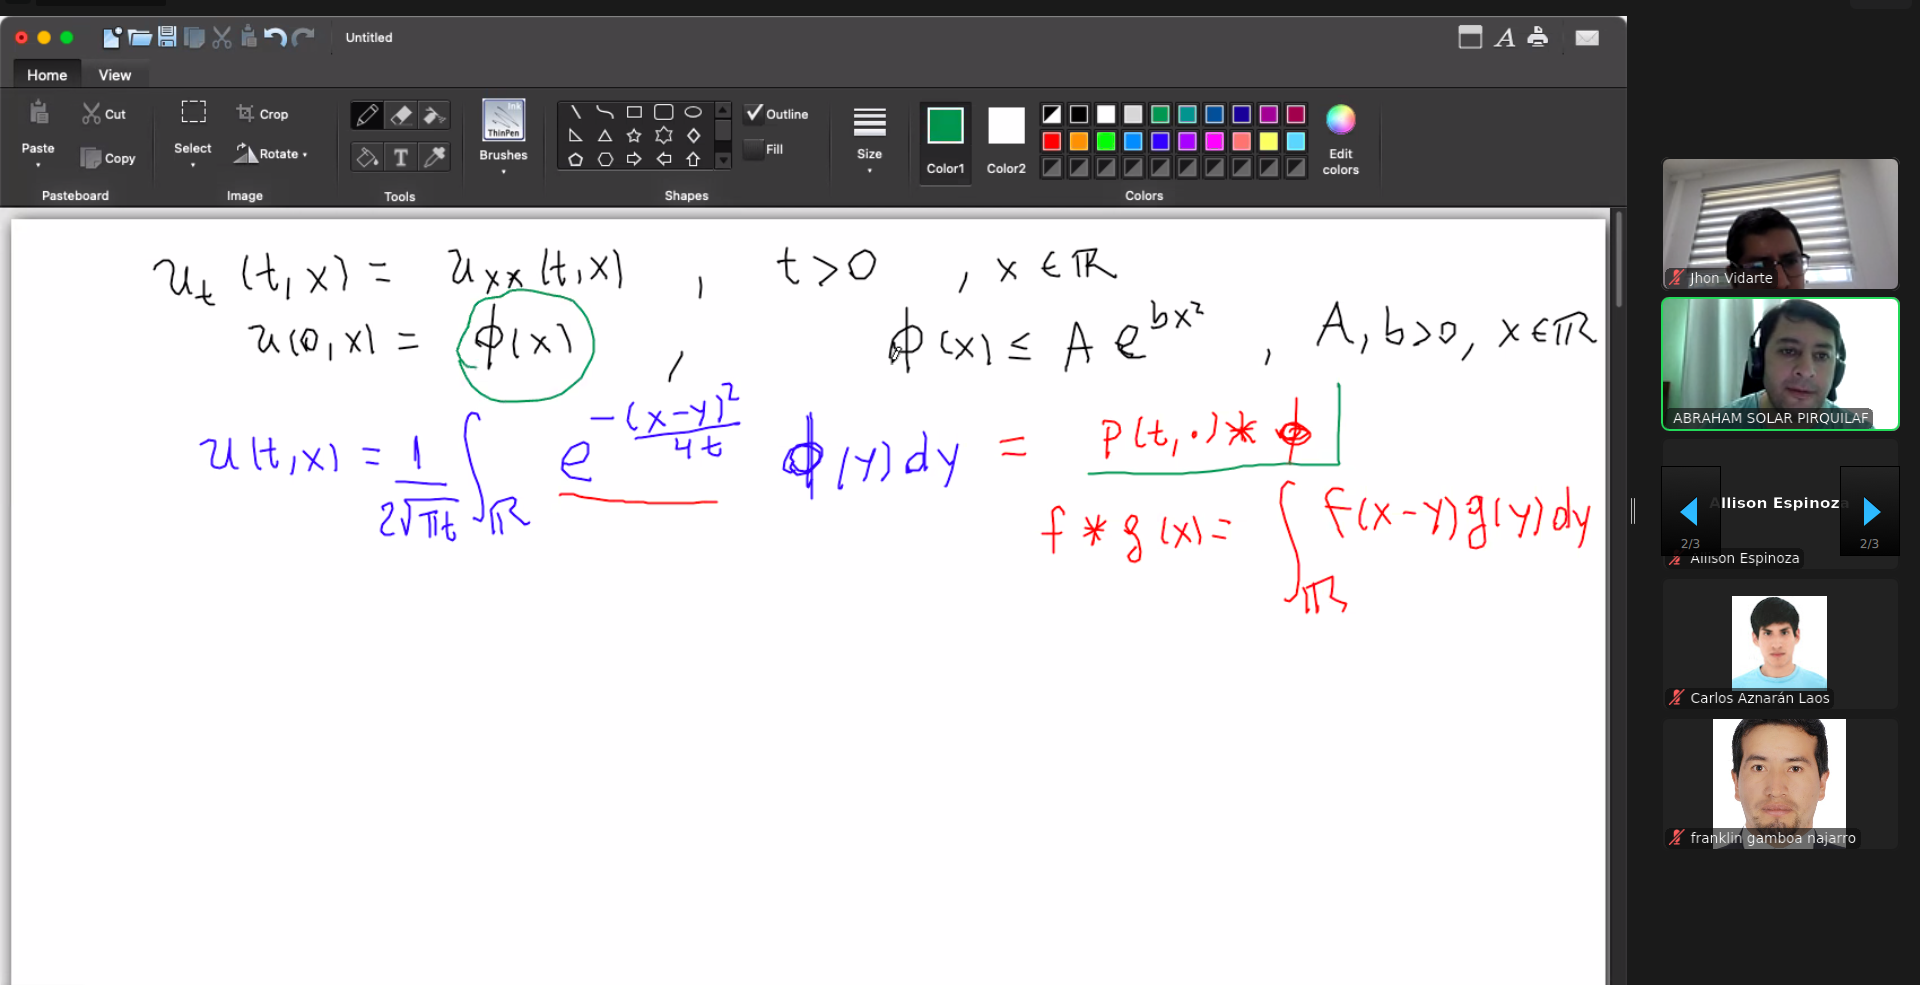 Untitled
Home View
Paste
Cut
Copy
Pasteboard
Select
Crop
Rotate
Image
Tools
Ink
ThinPen
Brushes
Outline
Fill
Shapes
Size
Color1
Color2
Edit colors
Colors
u_t (t,x) = u_xx (t,x) , t>0 , x ∈ ℝ
u(0,x) = ϕ(x) , ϕ(x) ≤ A e^{bx²} , A, b>0, x∈ℝ
u(t,x) = 1/(2√πt) ∫_ℝ e^{-(x-y)²/4t} ϕ(y)dy = P(t,·)* ϕ
f * g(x) = ∫_ℝ f(x-y)g(y)dy
Jhon Vidarte
ABRAHAM SOLAR PIRQUILAF
Allison Espinoza
2/3 2/3
Allison Espinoza
Carlos Aznarán Laos
franklin gamboa najarro